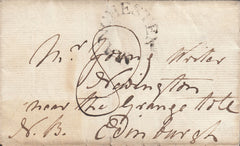 CHESTER
Mr Young Writer
Newington
near the Grange Tole
N.B. Edinburgh